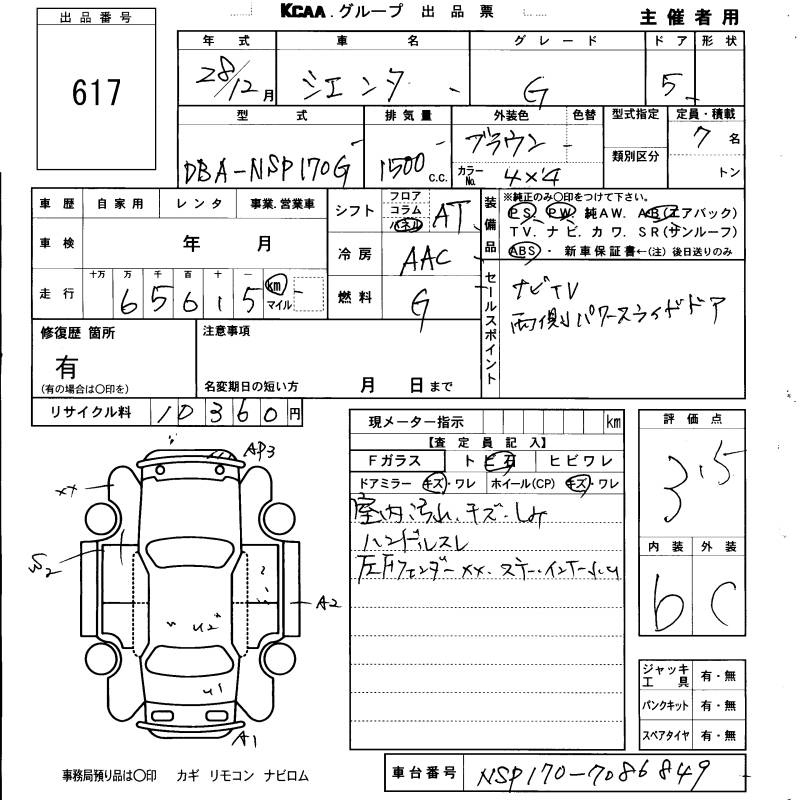 KCAA.グループ 出品票
主催者用
出品番号
617
年式 車名 グレード ドア 形状
28/12月 シエンタ G 5
型式 排気量 外装色 色替 型式指定 定員・積載
DBA-NSP170G 1500 c.c. ブラウン 7名
カラーNo. 4X4 類別区分 トン
車歴 自家用 レンタ 事業.営業車
シフト フロア コラム パネル AT
装備品 ※純正のみ○印をつけて下さい。
PS. PW. 純AW. AB(エアバック)
TV. ナビ. カワ. SR(サンルーフ)
ABS ・ 新車保証書←(注)後日送りのみ
車検 年 月
冷房 AAC
走行 十万 万 千 百 十 一 km マイル
65615
燃料 G
セールスポイント
ナビTV
両側パワースライドドア
修復歴 箇所
有
(有の場合は○印を)
注意事項
名変期日の短い方 月 日まで
リサイクル料 10360円
現メーター指示 km
【査定員記入】
Fガラス ト ビ石 ヒビワレ
ドアミラー キズ・ワレ ホイール(CP) キズ・ワレ
室内汚れ、キズ・しみ
ハンドルスレ
評価点
3.5
内装 外装
b C
AP3
XX
A2
U2
U1
A1
ジャッキ工具 有・無
パンクキット 有・無
スペアタイヤ 有・無
事務局預り品は○印 カギ リモコン ナビロム
車台番号 NSP170-7086849